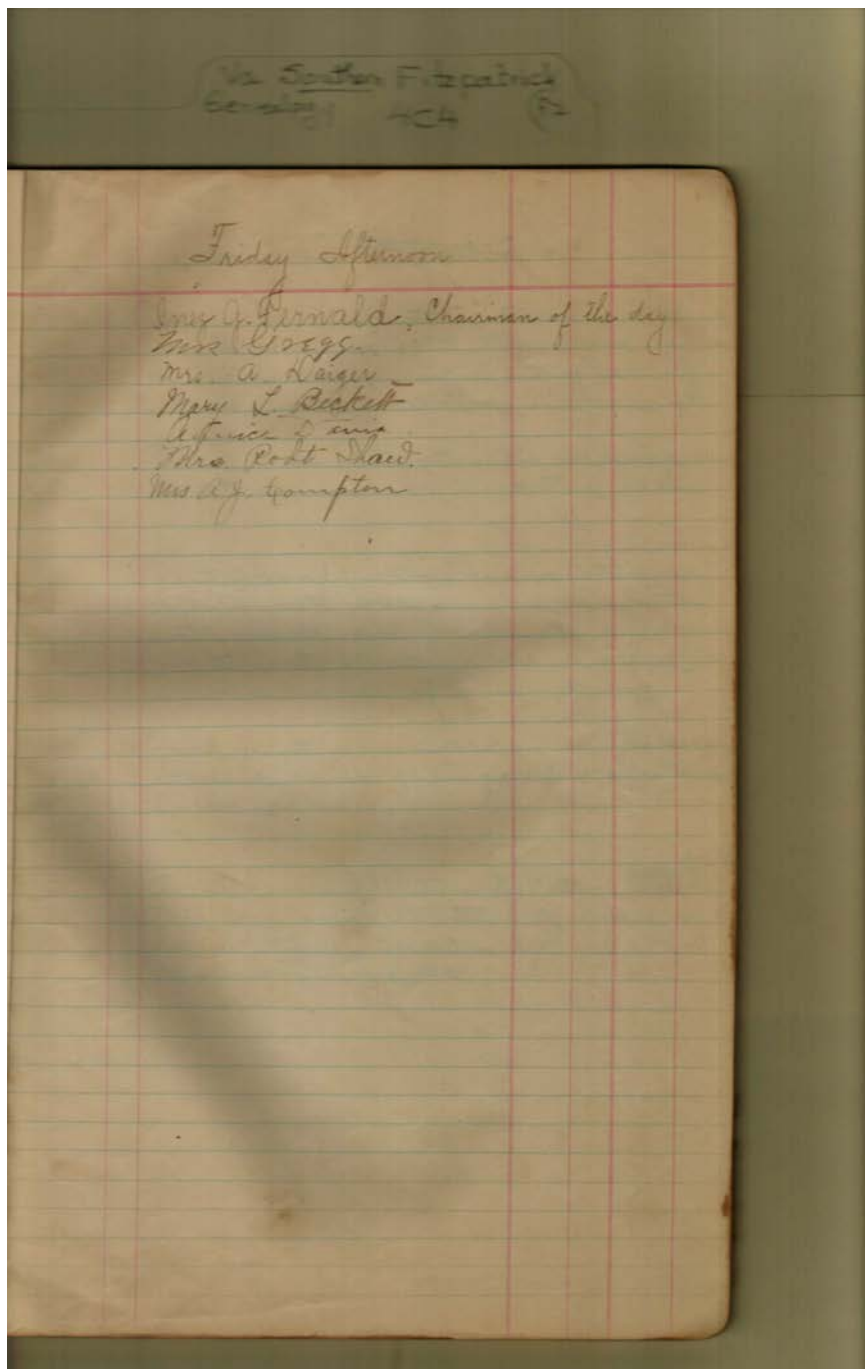 Southern Fitzpatrick
4C4
Friday Afternoon
Inez J. Fernald, Chairman of the day
Mrs Gregg.
Mrs. A Daiger
Mary L. Beckett
Mrs. Robt Shaw.
Mrs A. J. Compton